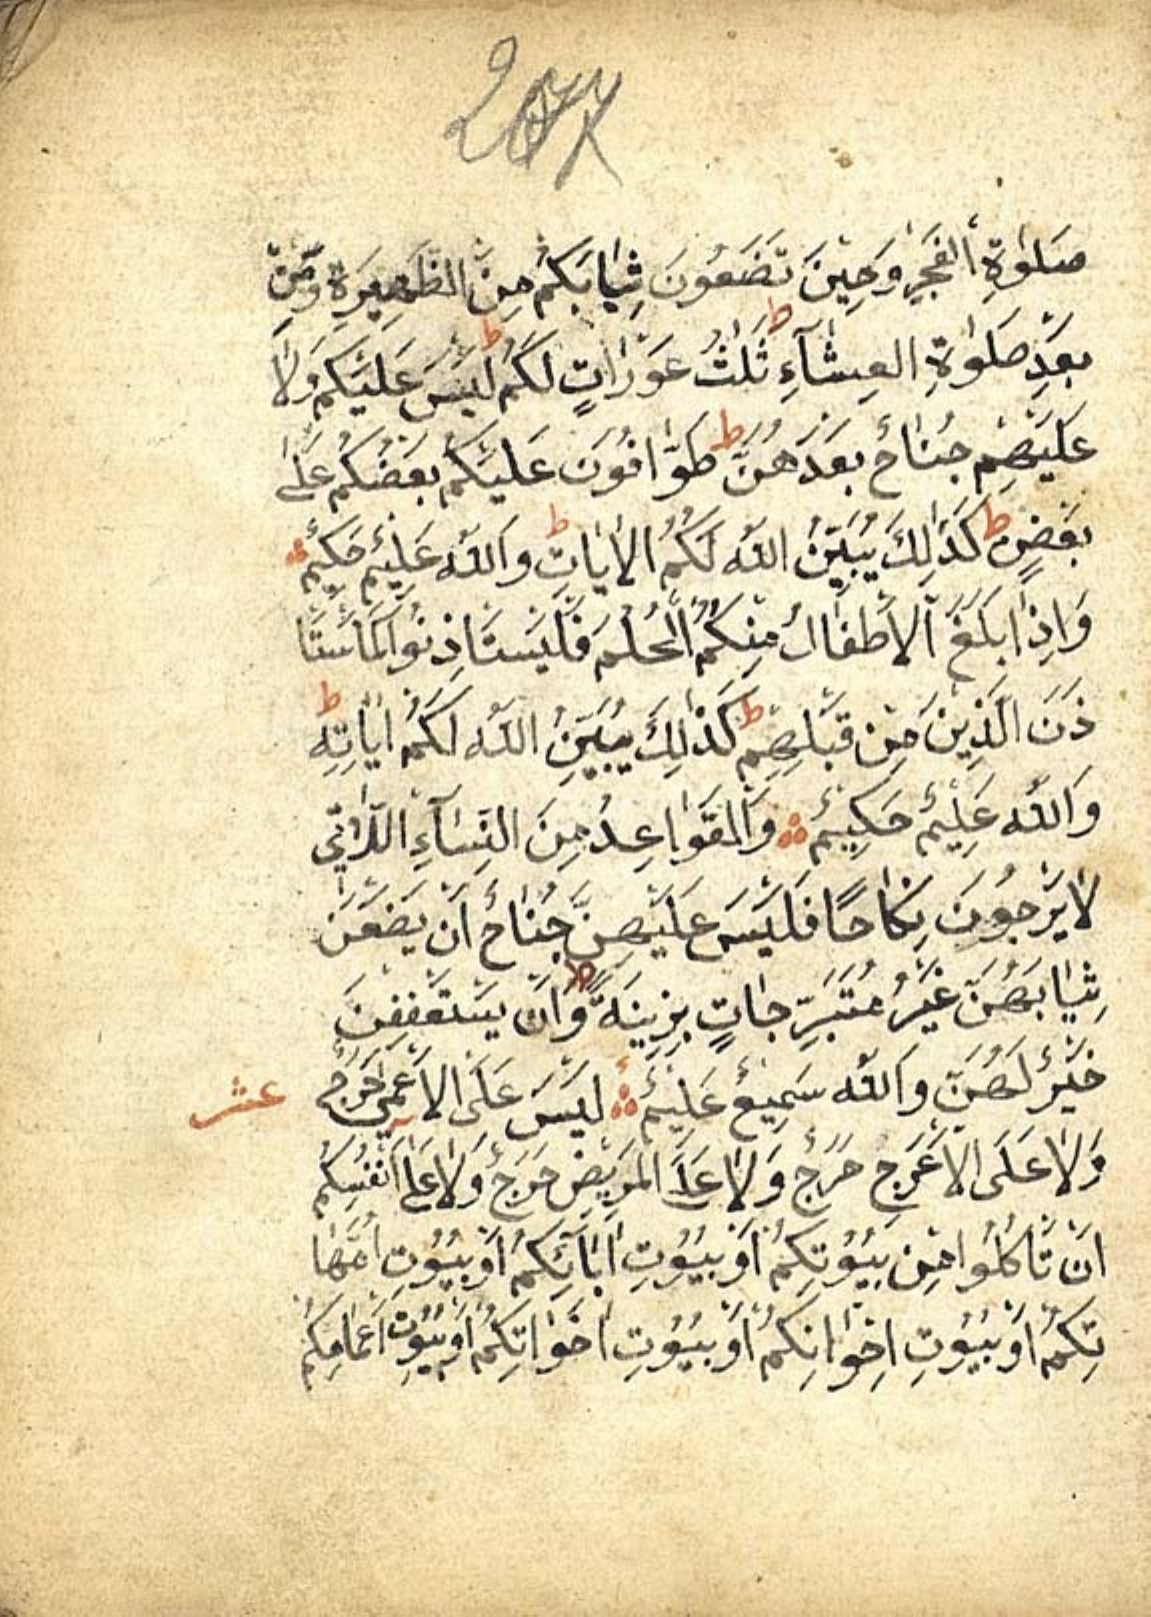 صَلٰوةِ الْفَجْرِ وَحِينَ تَضَعُونَ ثِيَابَكُمْ مِنَ الظَّهِيرَةِ وَمِنْ
بَعْدِ صَلٰوةِ الْعِشَآءِ ط ثَلٰثُ عَوْرَاتٍ لَكُمْ ط لَيْسَ عَلَيْكُمْ وَلَا
عَلَيْهِمْ جُنَاحٌ بَعْدَهُنَّ ط طَوَّافُونَ عَلَيْكُمْ بَعْضُكُمْ عَلٰى
بَعْضٍ ط كَذٰلِكَ يُبَيِّنُ اللّٰه لَكُمُ الْاٰيَاتِ ط وَاللّٰه عَلِيمٌ حَكِيمٌ
وَاِذَا بَلَغَ الْاَطْفَالُ مِنْكُمُ الْحُلُمَ فَلْيَسْتَاْذِنُوا كَمَا اسْتَا
ذَنَ الَّذِينَ مِنْ قَبْلِهِمْ ط كَذٰلِكَ يُبَيِّنُ اللّٰه لَكُمْ اٰيَاتِهِ ط
وَاللّٰه عَلِيمٌ حَكِيمٌ وَالْقَوَاعِدُ مِنَ النِّسَآءِ اللَّاتِي
لَا يَرْجُونَ نِكَاحًا فَلَيْسَ عَلَيْهِنَّ جُنَاحٌ اَنْ يَضَعْنَ
ثِيَابَهُنَّ غَيْرُ مُتَبَرِّجَاتٍ بِزِينَةٍ وَاَنْ يَسْتَعْفِفْنَ
خَيْرٌ لَهُنَّ وَاللّٰه سَمِيعٌ عَلِيمٌ لَيْسَ عَلَى الْاَعْمٰى حَرَجٌ
عشر
وَلَا عَلَى الْاَعْرَجِ حَرَجٌ وَلَا عَلَى الْمَرِيضِ حَرَجٌ وَلَا عَلٰى اَنْفُسِكُمْ
اَنْ تَاْكُلُوا مِنْ بُيُوتِكُمْ اَوْ بُيُوتِ اٰبَآئِكُمْ اَوْ بُيُوتِ اُمَّهَا
تِكُمْ اَوْ بُيُوتِ اِخْوَانِكُمْ اَوْ بُيُوتِ اَخَوَاتِكُمْ اَوْ بُيُوتِ اَعْمَامِكُمْ